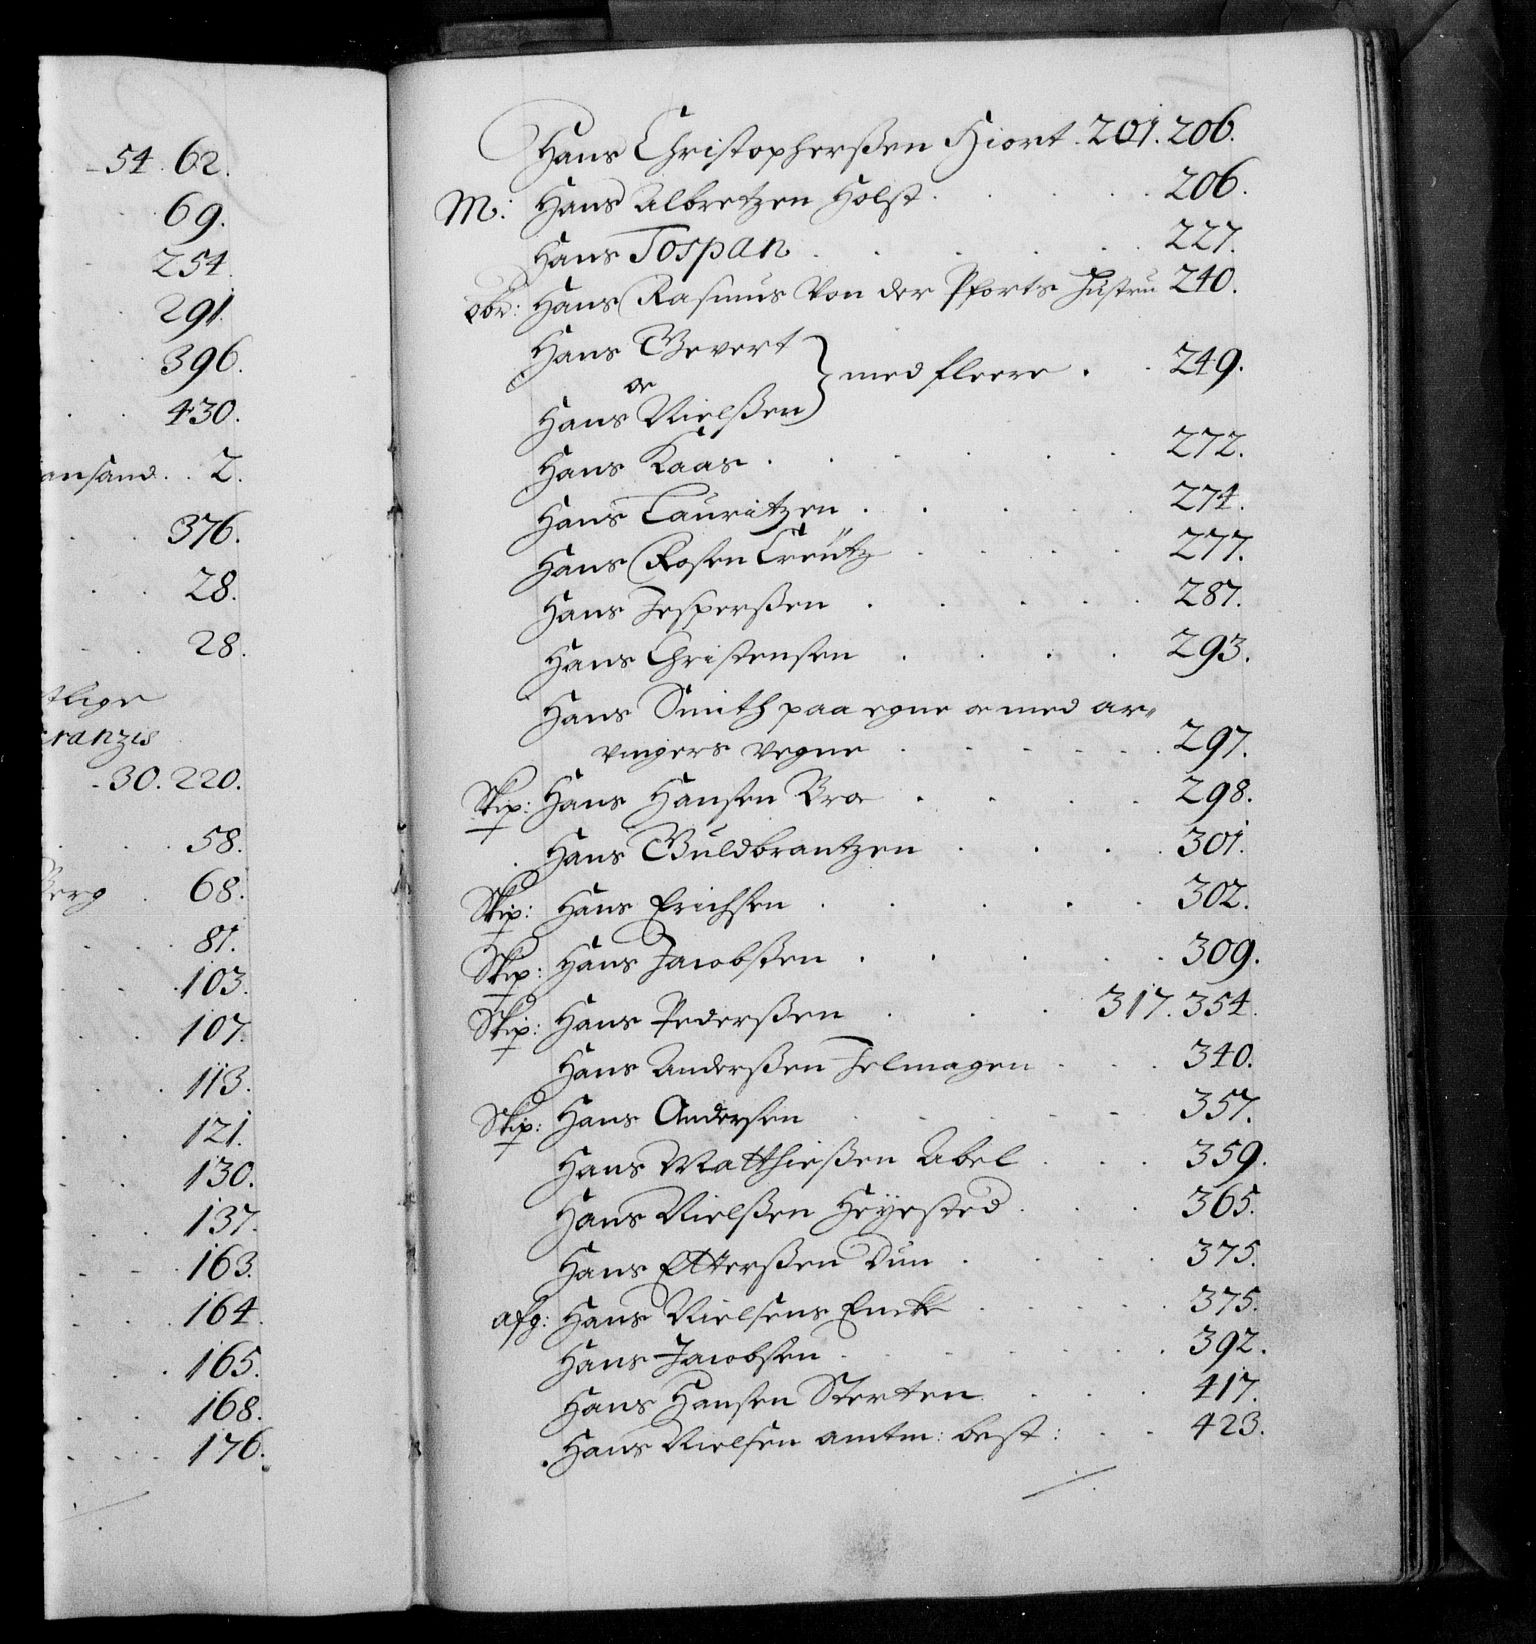 54. 62.
69.
254.
291.
396.
430.
ansand. . 2.
376.
28.
28.
tlige
ranzis
30. 220.
58.
Berg . 68.
81.
103.
107.
113.
121.
130.
137.
163.
164.
165.
168.
176.
Hans Christopherßen Hiort . 201. 206.
M: Hans Albretzen Holst . 206.
Hans Tospan . 227.
Obr: Hans Rasmus Von der Pforts Hustru 240.
Hans Gevert
oc } med fleere . 249.
Hans Nielßen
Hans Kaas . 272.
Hans Lauritzen . 274.
Hans RosenCreütz . 277.
Hans Jesperßen . 287.
Hans Christensen . 293.
Hans Smith paa egne oc med ar„
vingers vegne . 297.
Skip: Hans Hansen Bro . 298.
Hans Guldbrantzen . 301.
Skip: Hans Erichsen . 302.
Skip: Hans Jacobßen . 309.
Skip: Hans Pederßen . 317. 354.
Hans Anderßen . 340.
Skip: Hans Andersen . 357.
Hans Matthießen Abel . 359.
Hans Nielßen Heyested . 365.
Hans Etterßen Dun . 375.
afg: Hans Nielsens Encke . 375.
Hans Jacobsen . 392.
Hans Hansen Sterten . 417.
Hans Nielsen amtm: best: . 423.